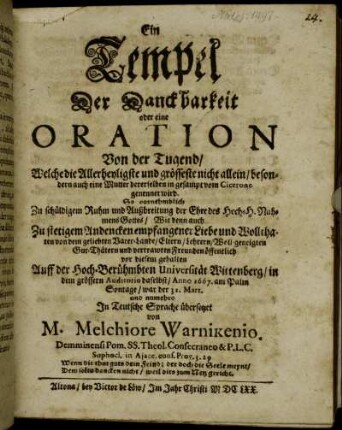 24.
Ein
Tempel
Der Danckbarkeit
oder eine
ORATION
Von der Tugend/
Welche die Allerheyligste und grösseste nicht allein/ beson-
dern auch eine Mutter derer selben in gesampt vom Cicerone
genennet wird.
So vornehmlich
Zu schüldigem Ruhm und Außbreitung der Ehre des Hoch-H. Nah-
mens Gottes/ Wie denn auch
Zu stetigem Andencken empfangener Liebe und Wolltha-
ten von dem geliebten Vater-Lande/ Eltern/ Lehrern/ Woll-geneigten
Gut-Thätern und vertrauten Freunden öffentlich
vor diesem gehalten
Auff der Hoch-Berühmbten Universität Wittenberg/ in
dem grössern Auditorio daselbst/ Anno 1667. am Palm
Sontage/ war der 31. Mart.
und nunmehro
In Teutsche Sprache übersetzet
von
M. Melchiore Warnikenio.
Demminensi Pom. SS. Theol. Consecraneo & P.L.C.
Sophocl. in Ajace
Altona/ bey Victor de Löw/ Im Jahr Christi M DC LXX.